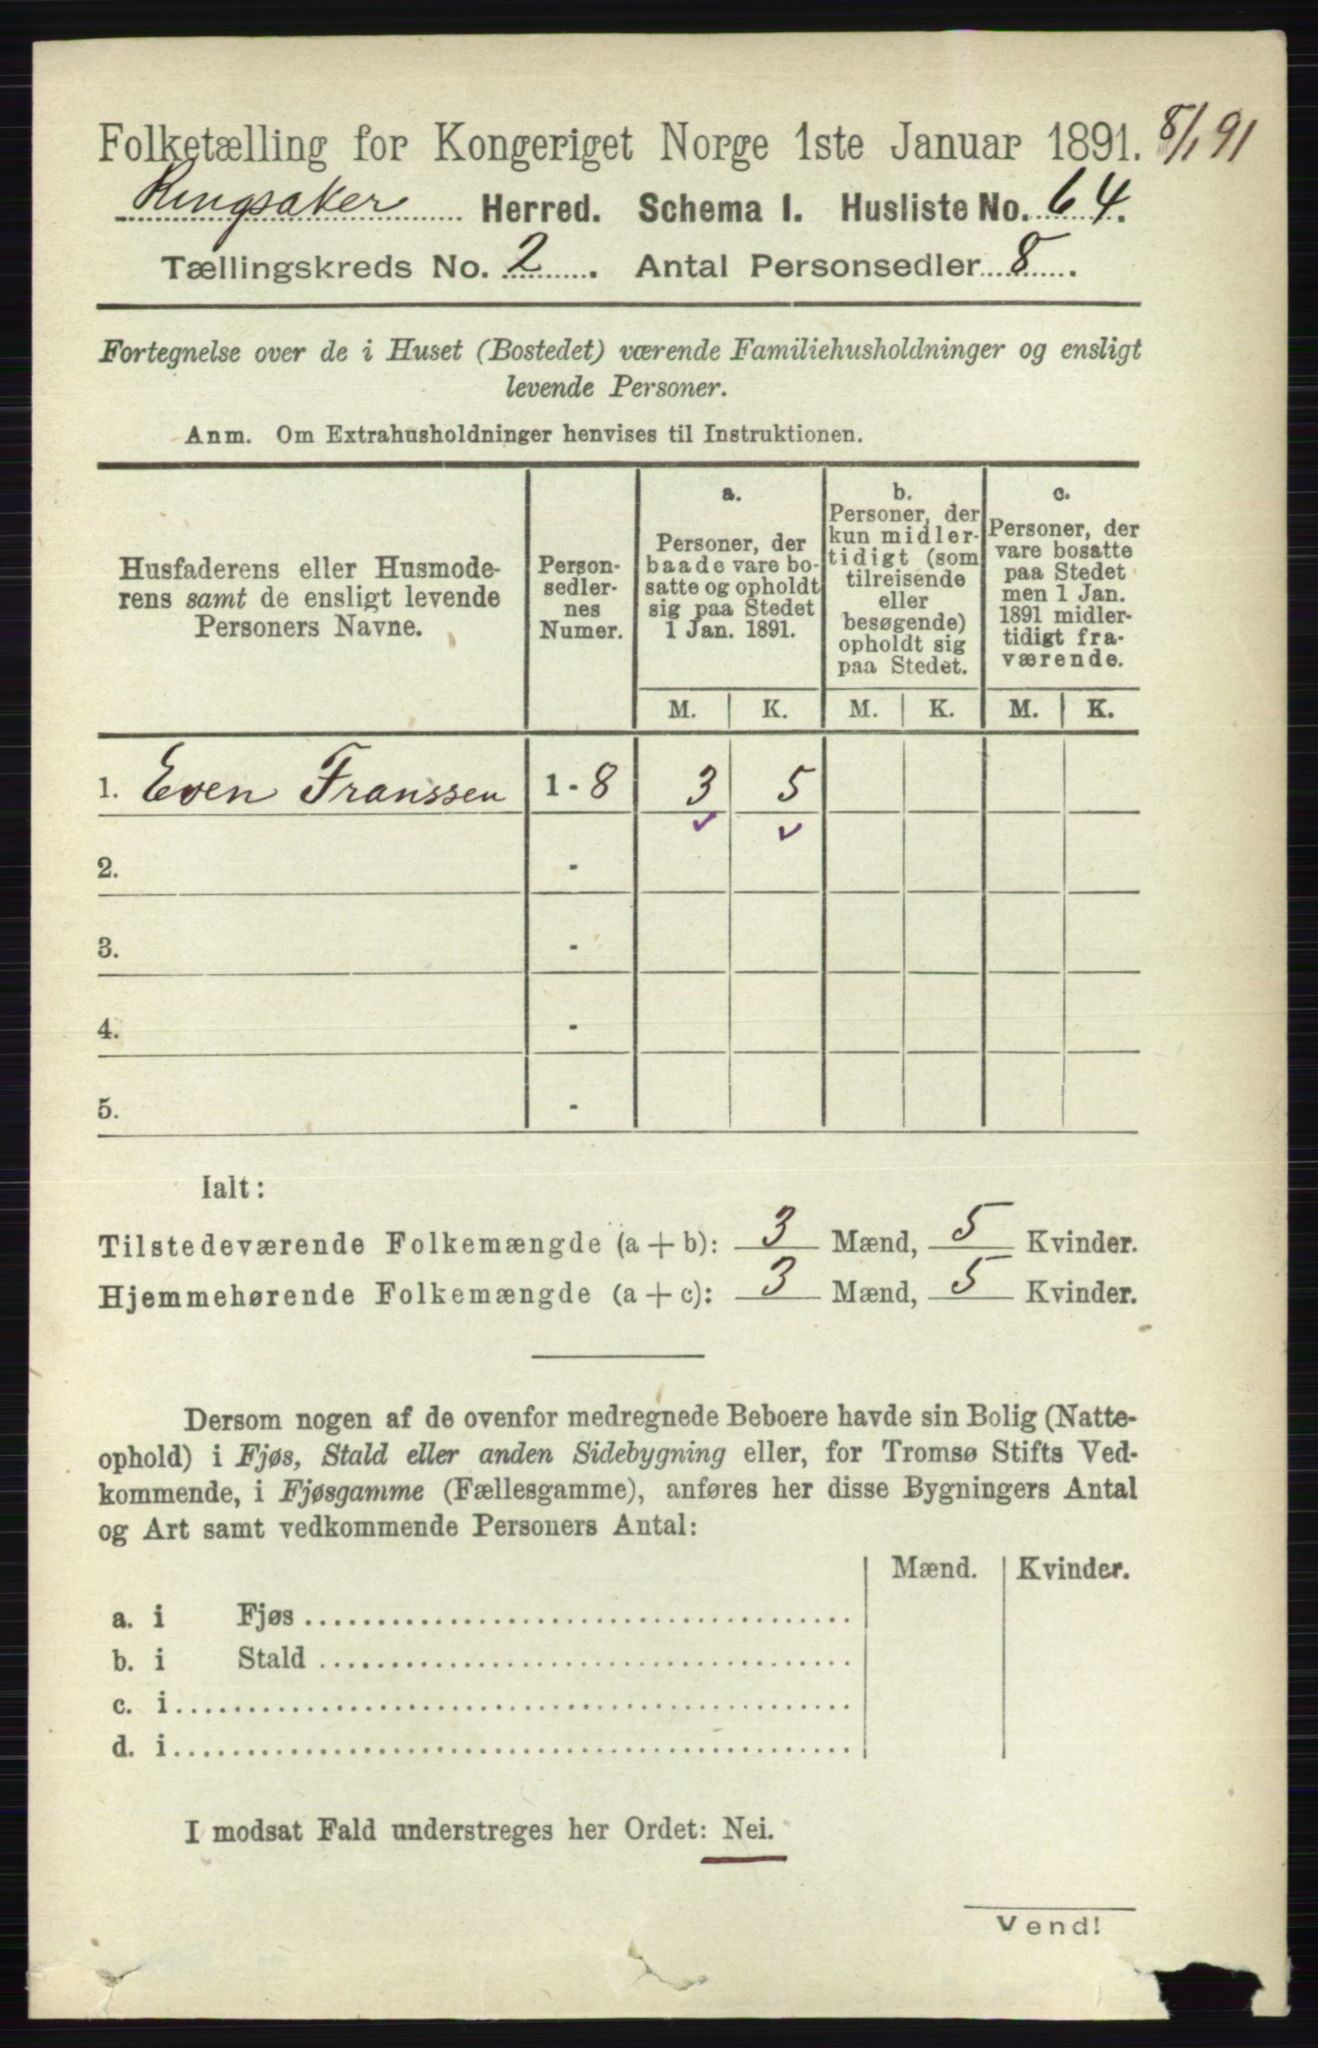 Folketælling for Kongeriget Norge 1ste Januar 1891. 8/1 91
Ringsaker Herred. Schema I. Husliste No. 64.
Tællingskreds No. 2. Antal Personsedler 8.
Fortegnelse over de i Huset (Bostedet) værende Familiehusholdninger og ensligt
levende Personer.
Anm. Om Extrahusholdninger henvises til Instruktionen.
Husfaderens eller Husmode-
rens samt de ensligt levende
Personers Navne.
Person-
sedler-
nes
Numer.
a.
Personer, der
baade vare bo-
satte og opholdt
sig paa Stedet
1 Jan. 1891.
b.
Personer, der
kun midler-
tidigt (som
tilreisende
eller
besøgende)
opholdt sig
paa Stedet.
c.
Personer, der
vare bosatte
paa Stedet
men 1 Jan.
1891 midler-
tidigt fra-
værende.
M. K. M. K. M. K.
1. Even Franssen 1-8 3 5
2. -
3. -
4. -
5. -
Ialt:
Tilstedeværende Folkemængde (a+b): 3 Mænd, 5 Kvinder.
Hjemmehørende Folkemængde (a+c): 3 Mænd, 5 Kvinder.
Dersom nogen af de ovenfor medregnede Beboere havde sin Bolig (Natte-
ophold) i Fjøs, Stald eller anden Sidebygning eller, for Tromsø Stifts Ved-
kommende, i Fjøsgamme (Fællesgamme), anføres her disse Bygningers Antal
og Art samt vedkommende Personers Antal:
Mænd. Kvinder.
a. i Fjøs
b. i Stald
c. i
d. i
I modsat Fald understreges her Ordet: Nei.
Vend!